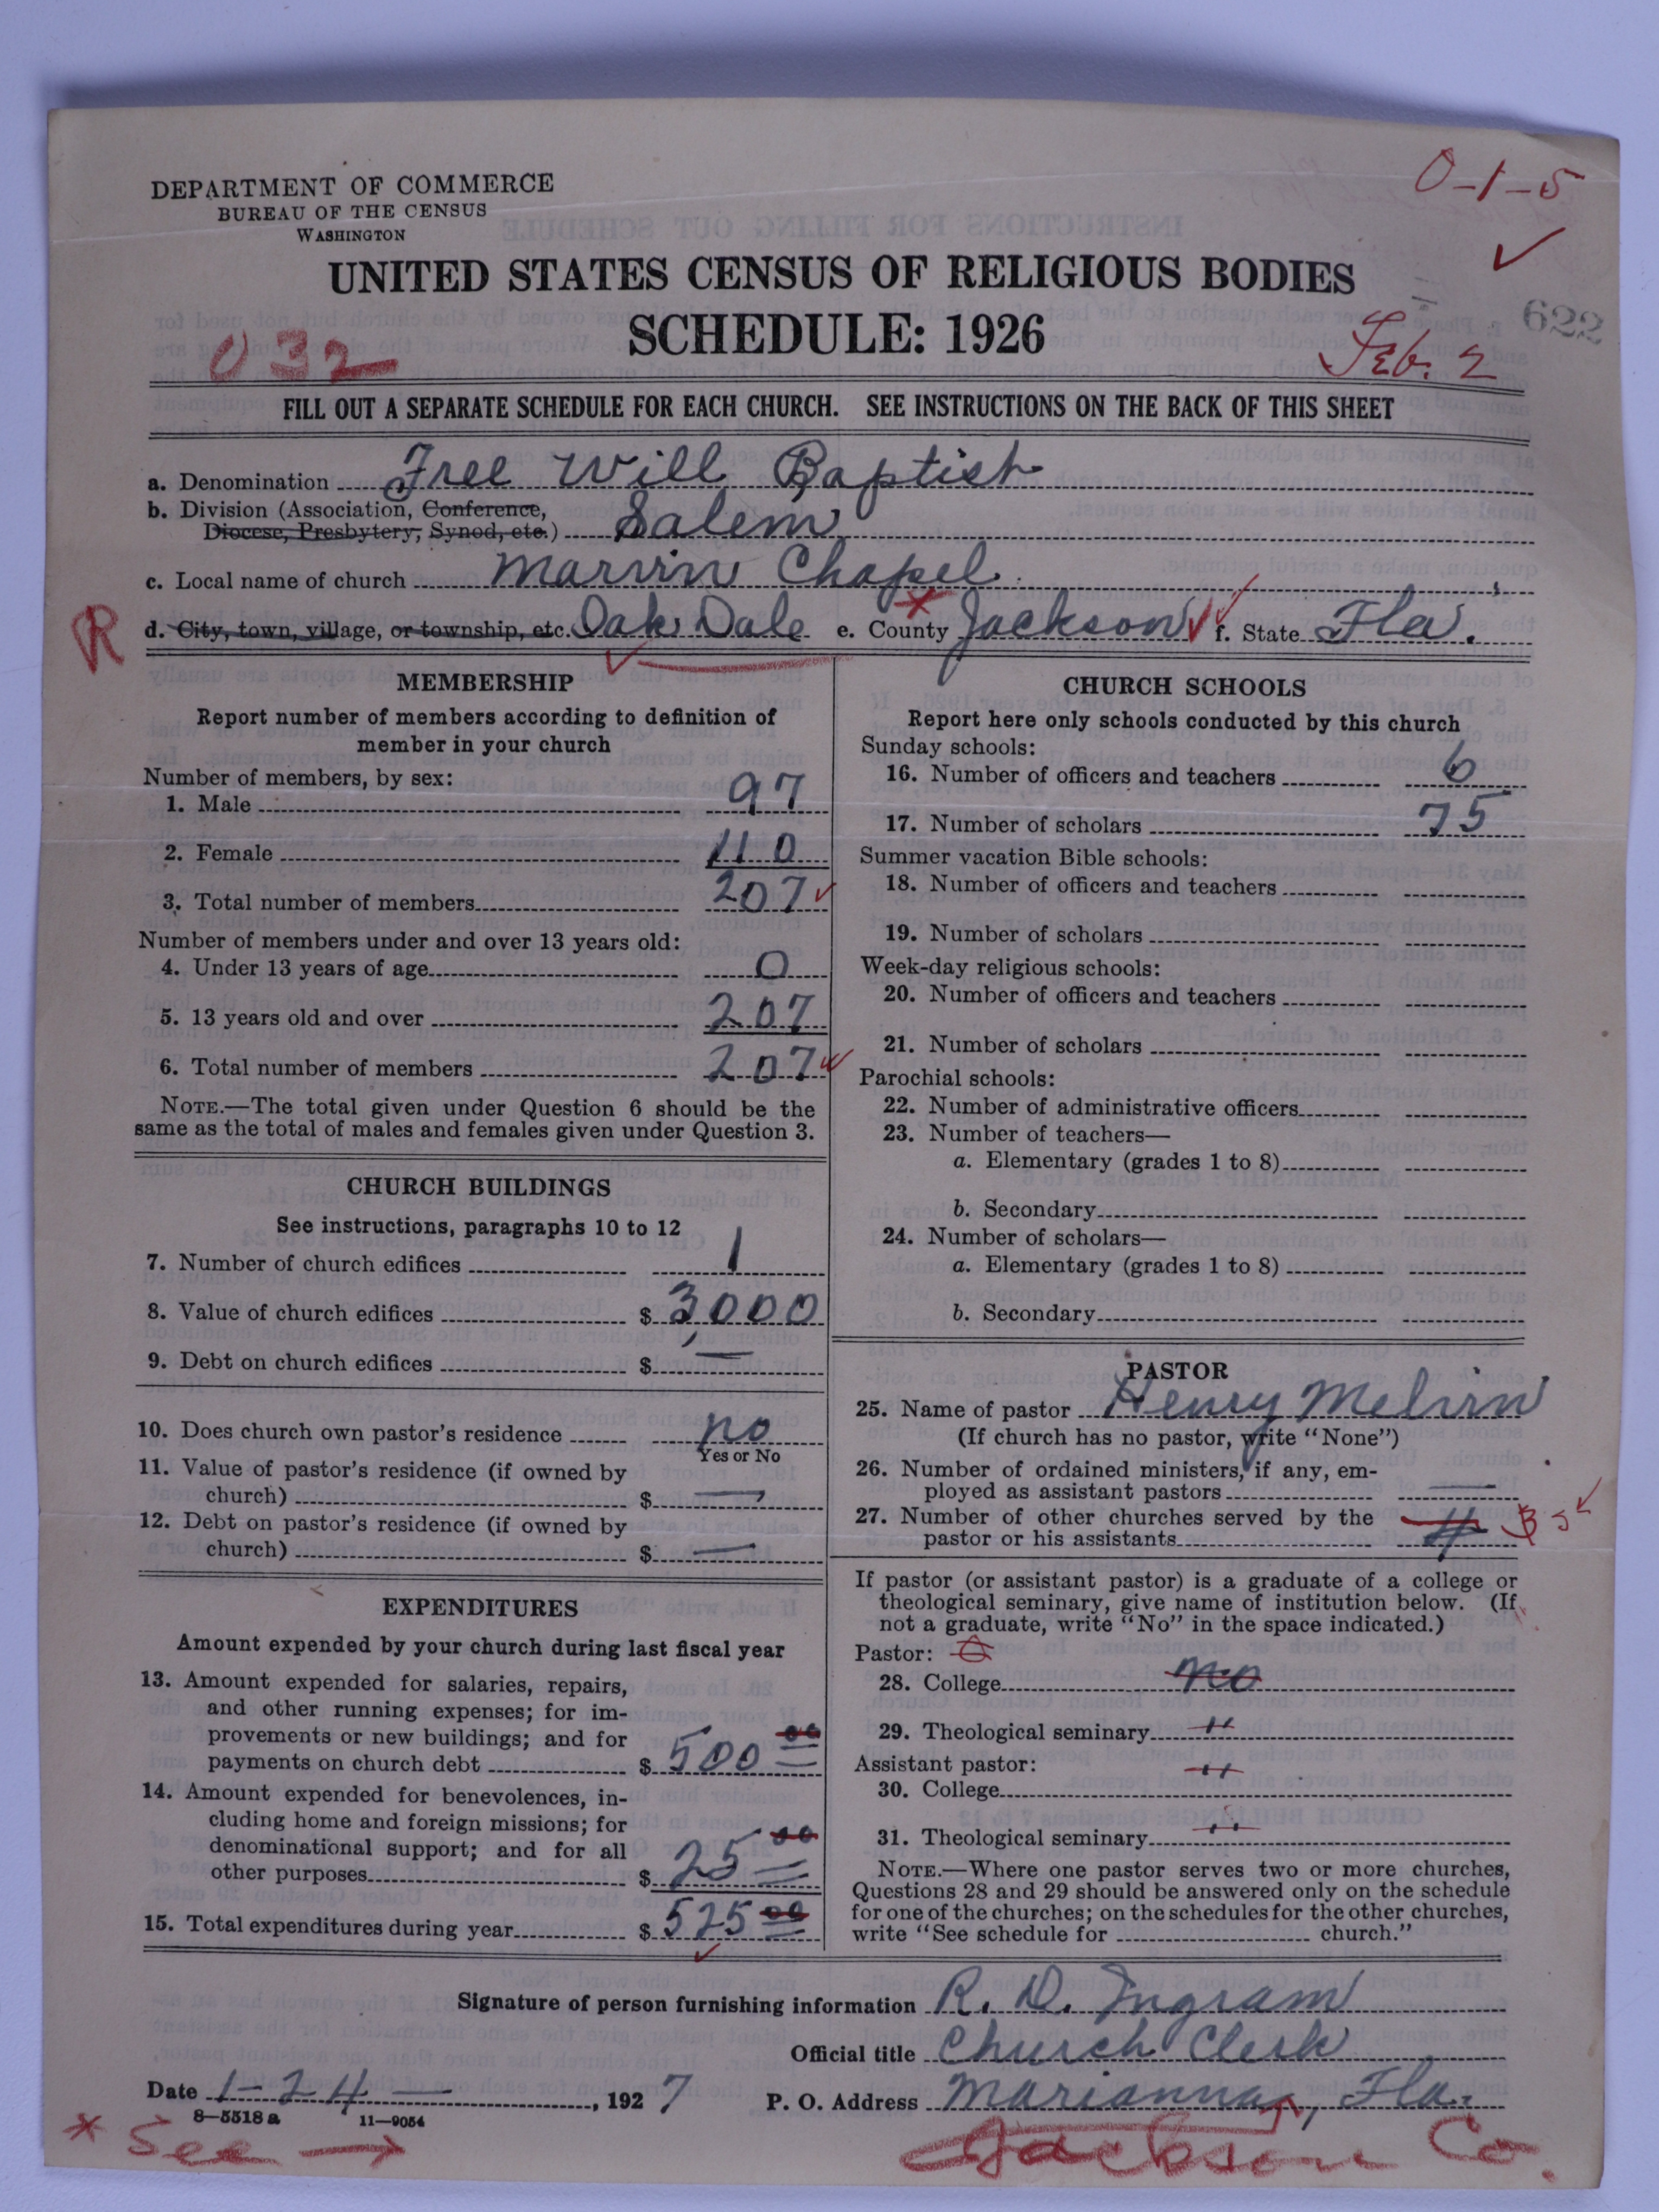 DEPARTMENT OF COMMERCE
BUREAU OF THE CENSUS
WASHINGTON
0-1-5
UNITED STATES CENSUS OF RELIGIOUS BODIES
SCHEDULE: 1926
622
032
Feb. 2
FILL OUT A SEPARATE SCHEDULE FOR EACH CHURCH. SEE INSTRUCTIONS ON THE BACK OF THIS SHEET
a. Denomination Free Will Baptist
b. Division (Association, Conference,
Diocese, Presbytery, Synod, etc.) Salem
c. Local name of church Marvin Chapel
R d. City, town, village, or township, etc. Oak Dale e. County Jackson f. State Fla.
MEMBERSHIP
Report number of members according to definition of
member in your church
Number of members, by sex:
1. Male 97
2. Female 110
3. Total number of members 207
Number of members under and over 13 years old:
4. Under 13 years of age 0
5. 13 years old and over 207
6. Total number of members 207
NOTE.—The total given under Question 6 should be the
same as the total of males and females given under Question 3.
CHURCH BUILDINGS
See instructions, paragraphs 10 to 12
7. Number of church edifices 1
8. Value of church edifices $ 3,000
9. Debt on church edifices $ —
10. Does church own pastor's residence no
Yes or No
11. Value of pastor's residence (if owned by
church) $ —
12. Debt on pastor's residence (if owned by
church) $ —
EXPENDITURES
Amount expended by your church during last fiscal year
13. Amount expended for salaries, repairs,
and other running expenses; for im-
provements or new buildings; and for
payments on church debt $ 500 00
14. Amount expended for benevolences, in-
cluding home and foreign missions; for
denominational support; and for all
other purposes $ 25 00
15. Total expenditures during year $ 525 00
CHURCH SCHOOLS
Report here only schools conducted by this church
Sunday schools:
16. Number of officers and teachers 6
17. Number of scholars 75
Summer vacation Bible schools:
18. Number of officers and teachers
19. Number of scholars
Week-day religious schools:
20. Number of officers and teachers
21. Number of scholars
Parochial schools:
22. Number of administrative officers
23. Number of teachers—
a. Elementary (grades 1 to 8)
b. Secondary
24. Number of scholars—
a. Elementary (grades 1 to 8)
b. Secondary
PASTOR
25. Name of pastor Henry Melvin
(If church has no pastor, write "None")
26. Number of ordained ministers, if any, em-
ployed as assistant pastors —
27. Number of other churches served by the
pastor or his assistants 4
If pastor (or assistant pastor) is a graduate of a college or
theological seminary, give name of institution below. (If
not a graduate, write "No" in the space indicated.)
Pastor:
28. College no
29. Theological seminary "
Assistant pastor: "
30. College
31. Theological seminary "
NOTE.—Where one pastor serves two or more churches,
Questions 28 and 29 should be answered only on the schedule
for one of the churches; on the schedules for the other churches,
write "See schedule for church."
Signature of person furnishing information R. D. Ingram
Official title Church Clerk
Date 1-24—, 1927 P. O. Address Marianna, Fla.
8—5518 a 11—9054
* See → Jackson Co.